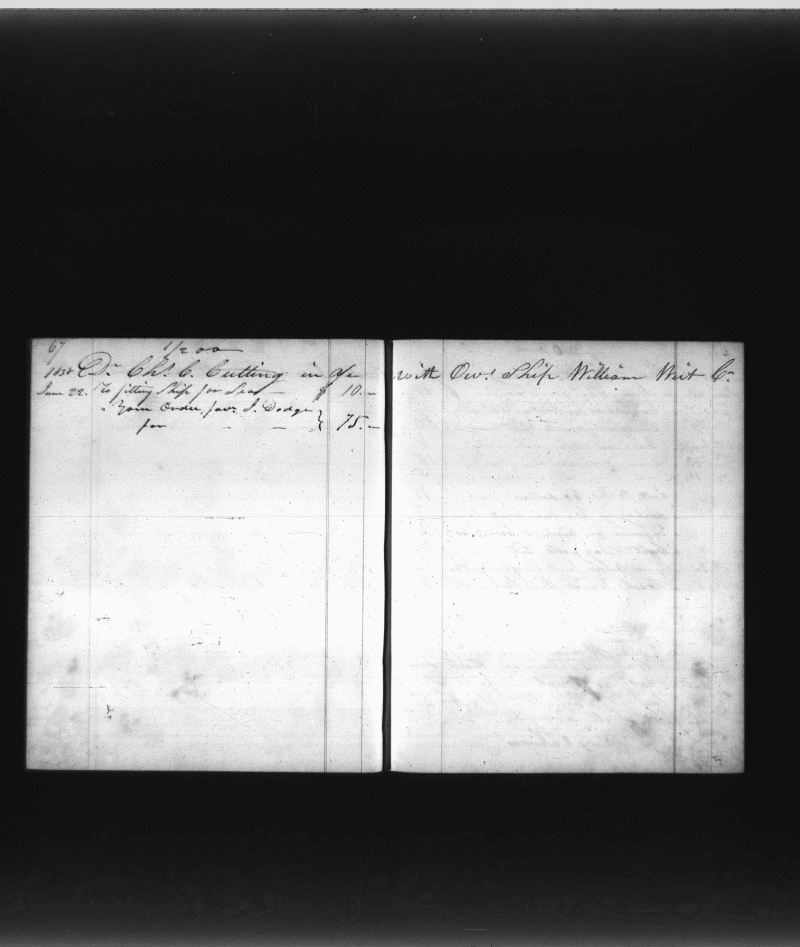 67 1/200
1834 Dr. Chs. C. Cutting in a/c with Ows Ship William Wirt Cr.
June 22. To fitting Ship for Sea — $ 10.—
" Your Order, favr. I. Dodge
for — — 75.—